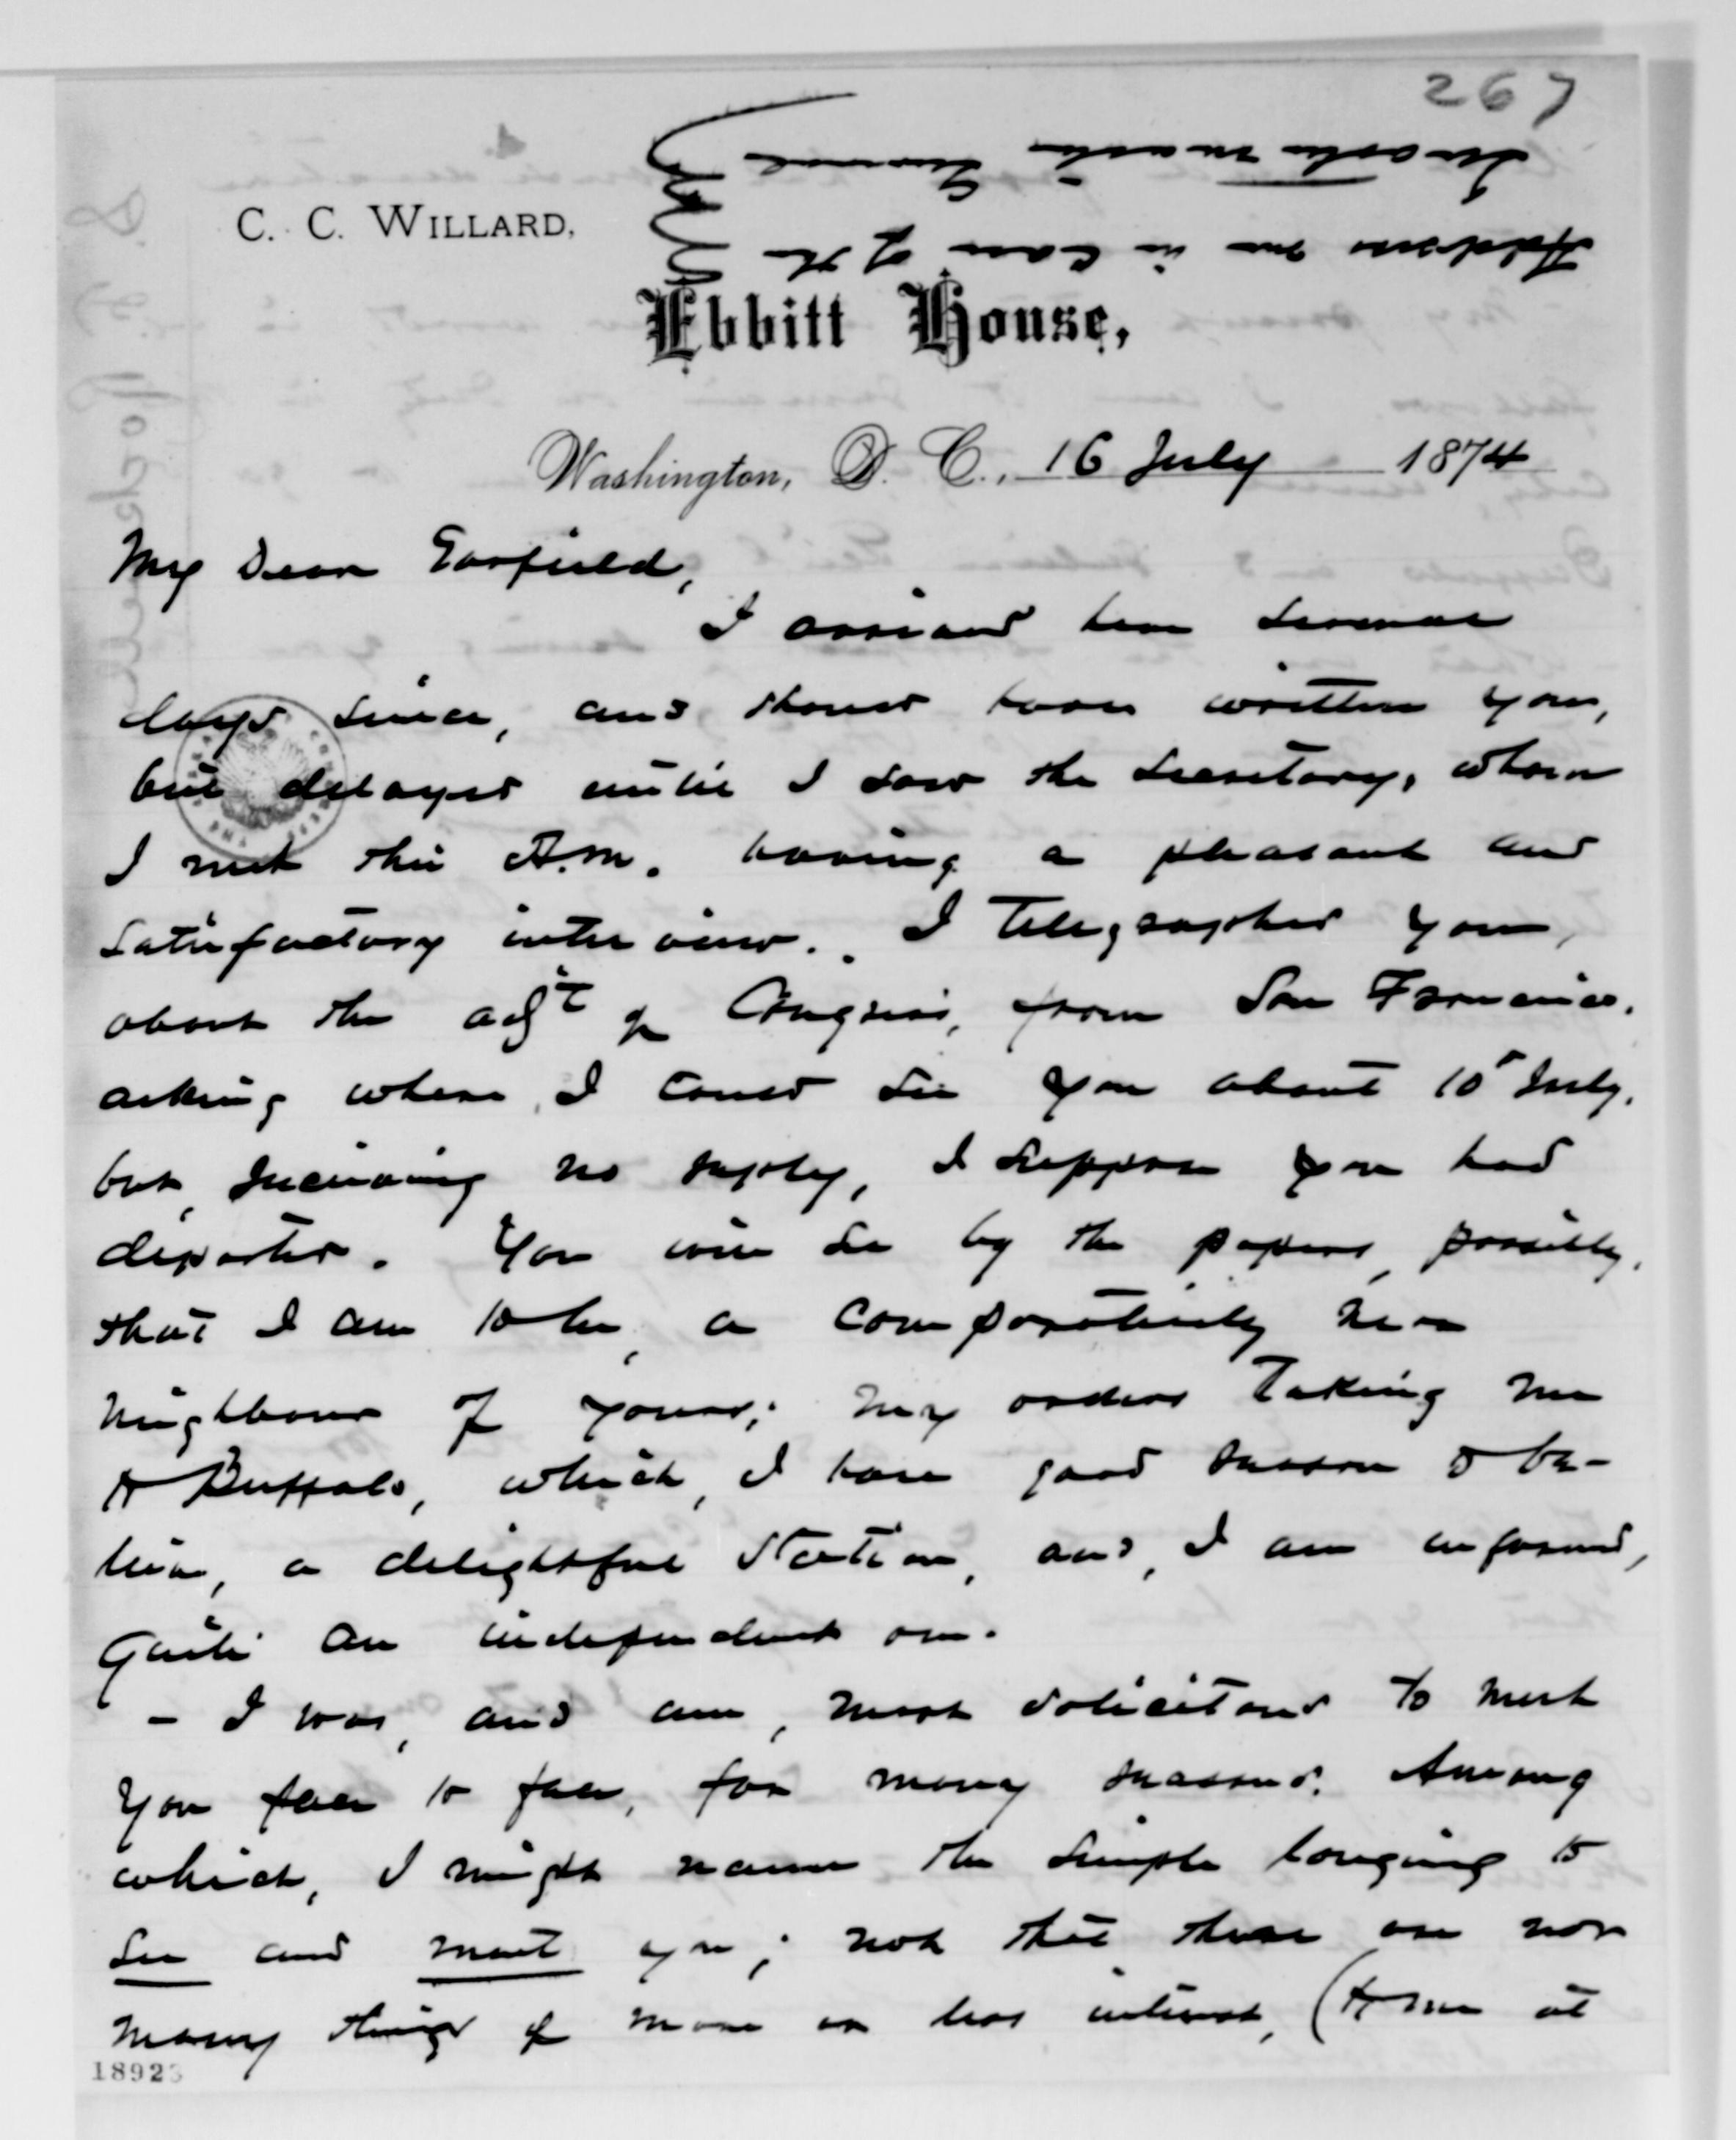 267
Address me in Care of the
Quarter Master General
C. C. WILLARD,
Ebbitt House,
Washington, D. C., 16 July 1874
My Dear Garfield,
I arrived here several
days since, and should have written you,
but delayed until I saw the Secretary, whom
I met this A.M. having a pleasant and
satisfactory interview. I telegraphed you,
about the adjt of Congress, from San Francisco,
asking where I could see you about 10" July,
but, receiving no reply, I suppose you had
departed. You will see by the papers, possibly,
that I am to be, a comparatively near
neighbour of yours; my orders taking me
to Buffalo, which, I have good reason to be-
lieve, a delightful Station, and, I am informed,
quite an independent one.
- I was, and am, most solicitous to meet
you face to face, for many reasons. Among
which, I might name the simple longing to
see and meet you; not that there are not
many things of more or less interest, (to me at
18923